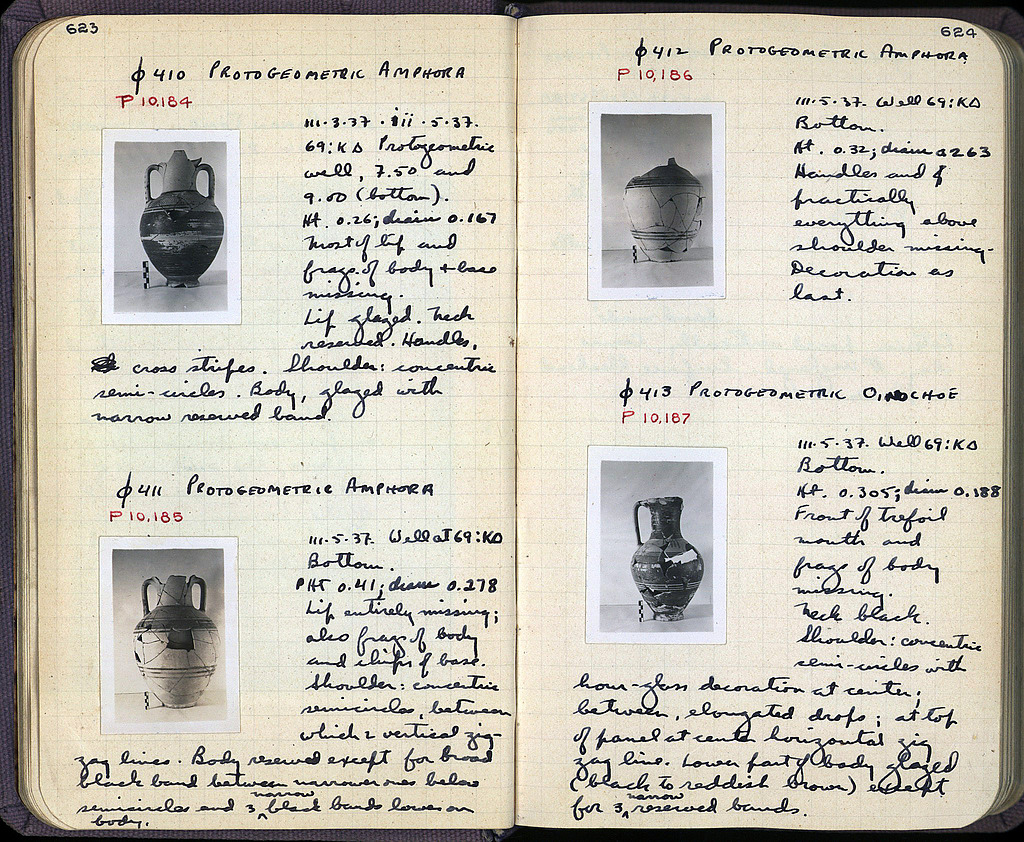 623
φ410 PROTOGEOMETRIC AMPHORA
P 10,184
III-3-37 · iii · 5-37.
69:ΚΔ Protogeometric
well, 7.50 and
9.00 (bottom).
Ht. 0.26; diam 0.167
Most of lip and
frags. of body + base
missing.
Lip glazed. Neck
reserved. Handles,
cross stripes. Shoulder: concentric
semi-circles. Body, glazed with
narrow reserved band.
φ411 PROTOGEOMETRIC AMPHORA
P 10,185
III-5-37. Well at 69:ΚΔ
Bottom.
PHt 0.41; diam 0.278
Lip entirely missing;
also frags. of body
and chips of base.
Shoulder: concentric
semicircles, between
which 2 vertical zig-
zag lines. Body reserved except for broad
black band between narrower ones below
semicircles and 3 narrow black bands lower on
body.
624
φ412 PROTOGEOMETRIC AMPHORA
P 10,186
III-5-37. Well 69:ΚΔ
Bottom.
Ht. 0.32; diam 0.263
Handles and
practically
everything above
shoulder missing.
Decoration as
last.
φ413 PROTOGEOMETRIC OINOCHOE
P 10,187
III-5-37. Well 69:ΚΔ
Bottom.
Ht. 0.305; diam 0.188
Front of trefoil
mouth and
frags of body
missing.
Neck black.
Shoulder: concentric
semi-circles with
hour-glass decoration at center;
between, elongated drops; at top
of panel at center horizontal zig
zag line. Lower part of body glazed
(black to reddish brown) except
for 3 narrow reserved bands.